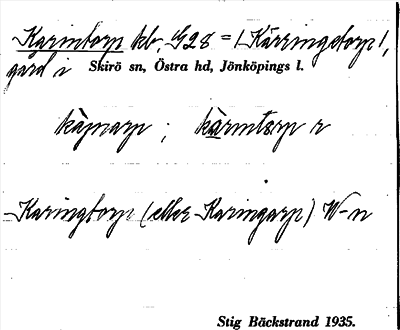 Karintorp kb, G28 = 1 Kärringetorp 1,
gård i Skirö sn, Östra hd, Jönköpings l.
kàjnarp ; kàrmtsrp r
Karingtorp (eller Karingarp) W-n
Stig Bäckstrand 1935.